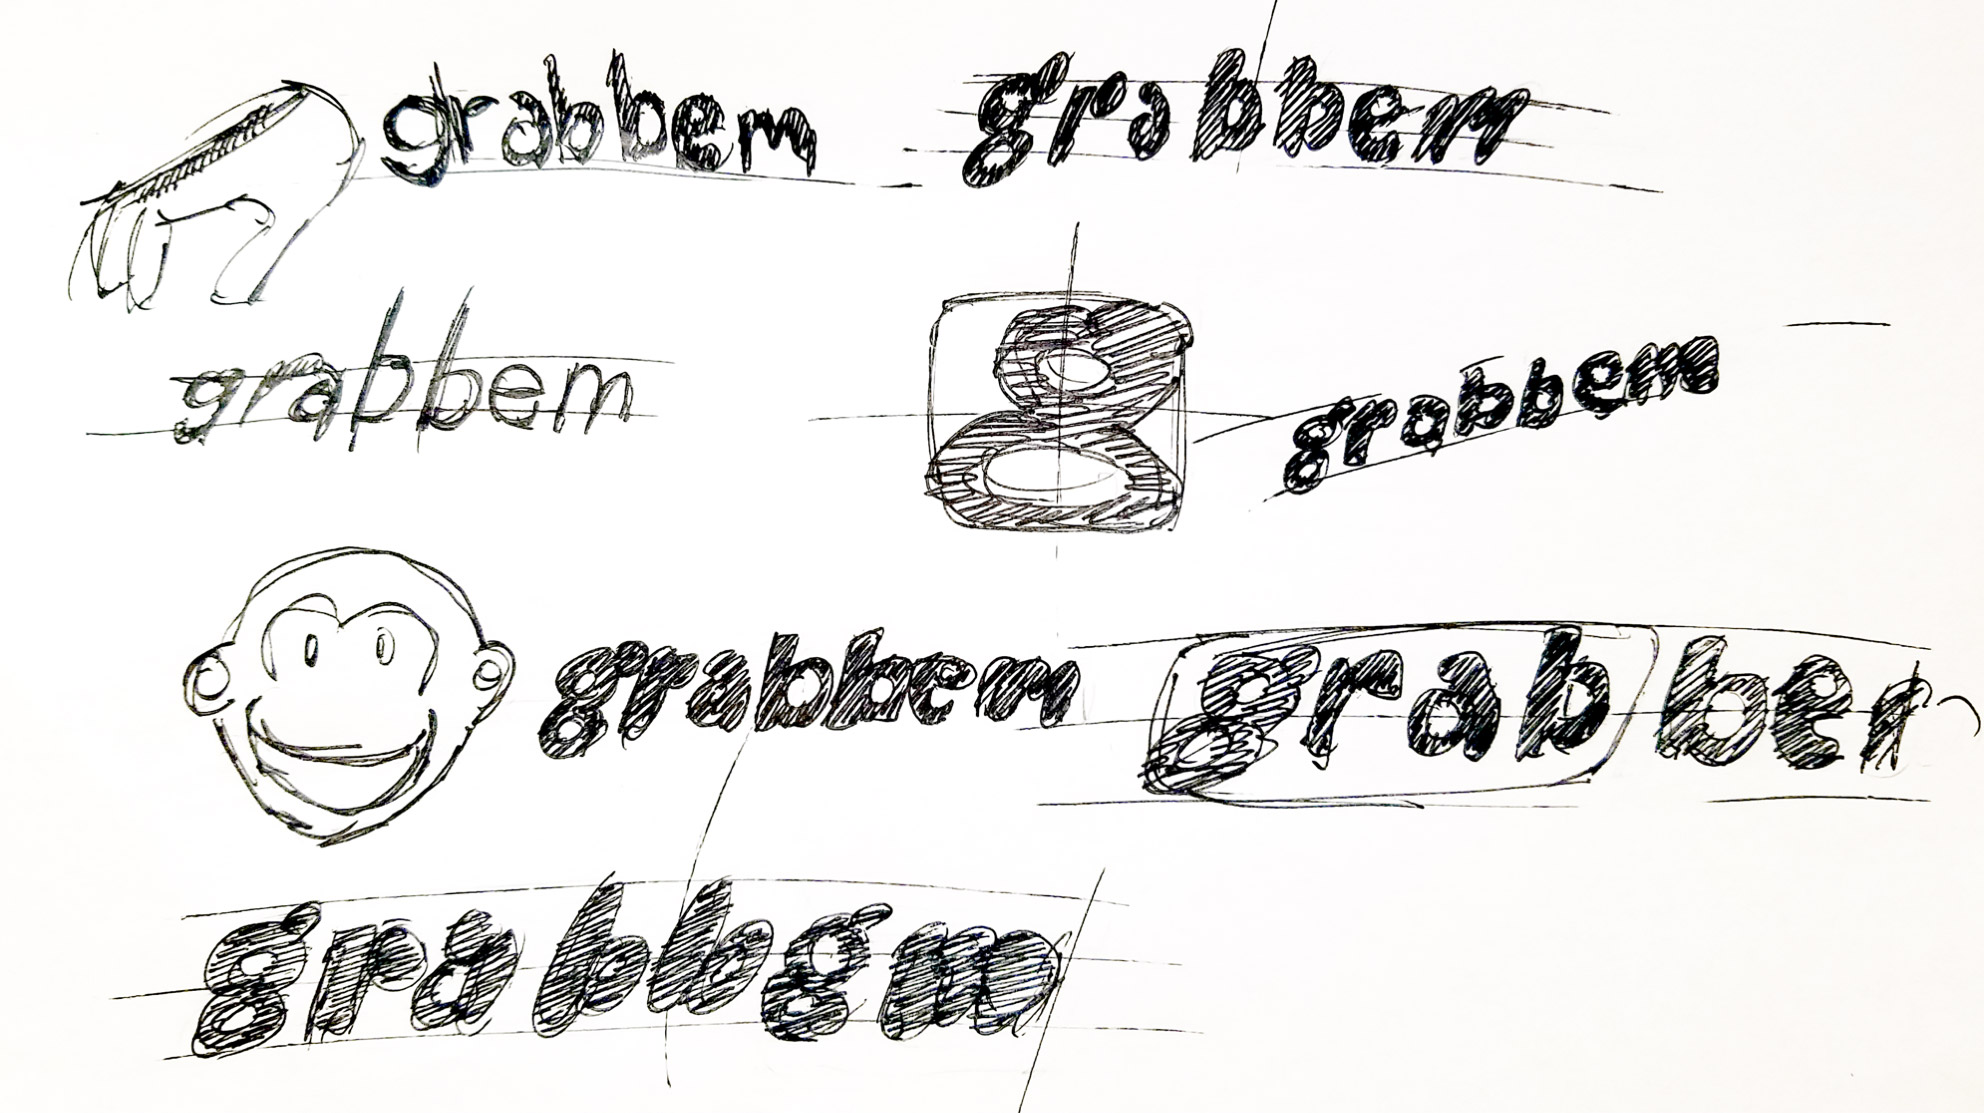 grabbem grabbem
grabbem g grabbem
grabbem grabbem
grabbgm